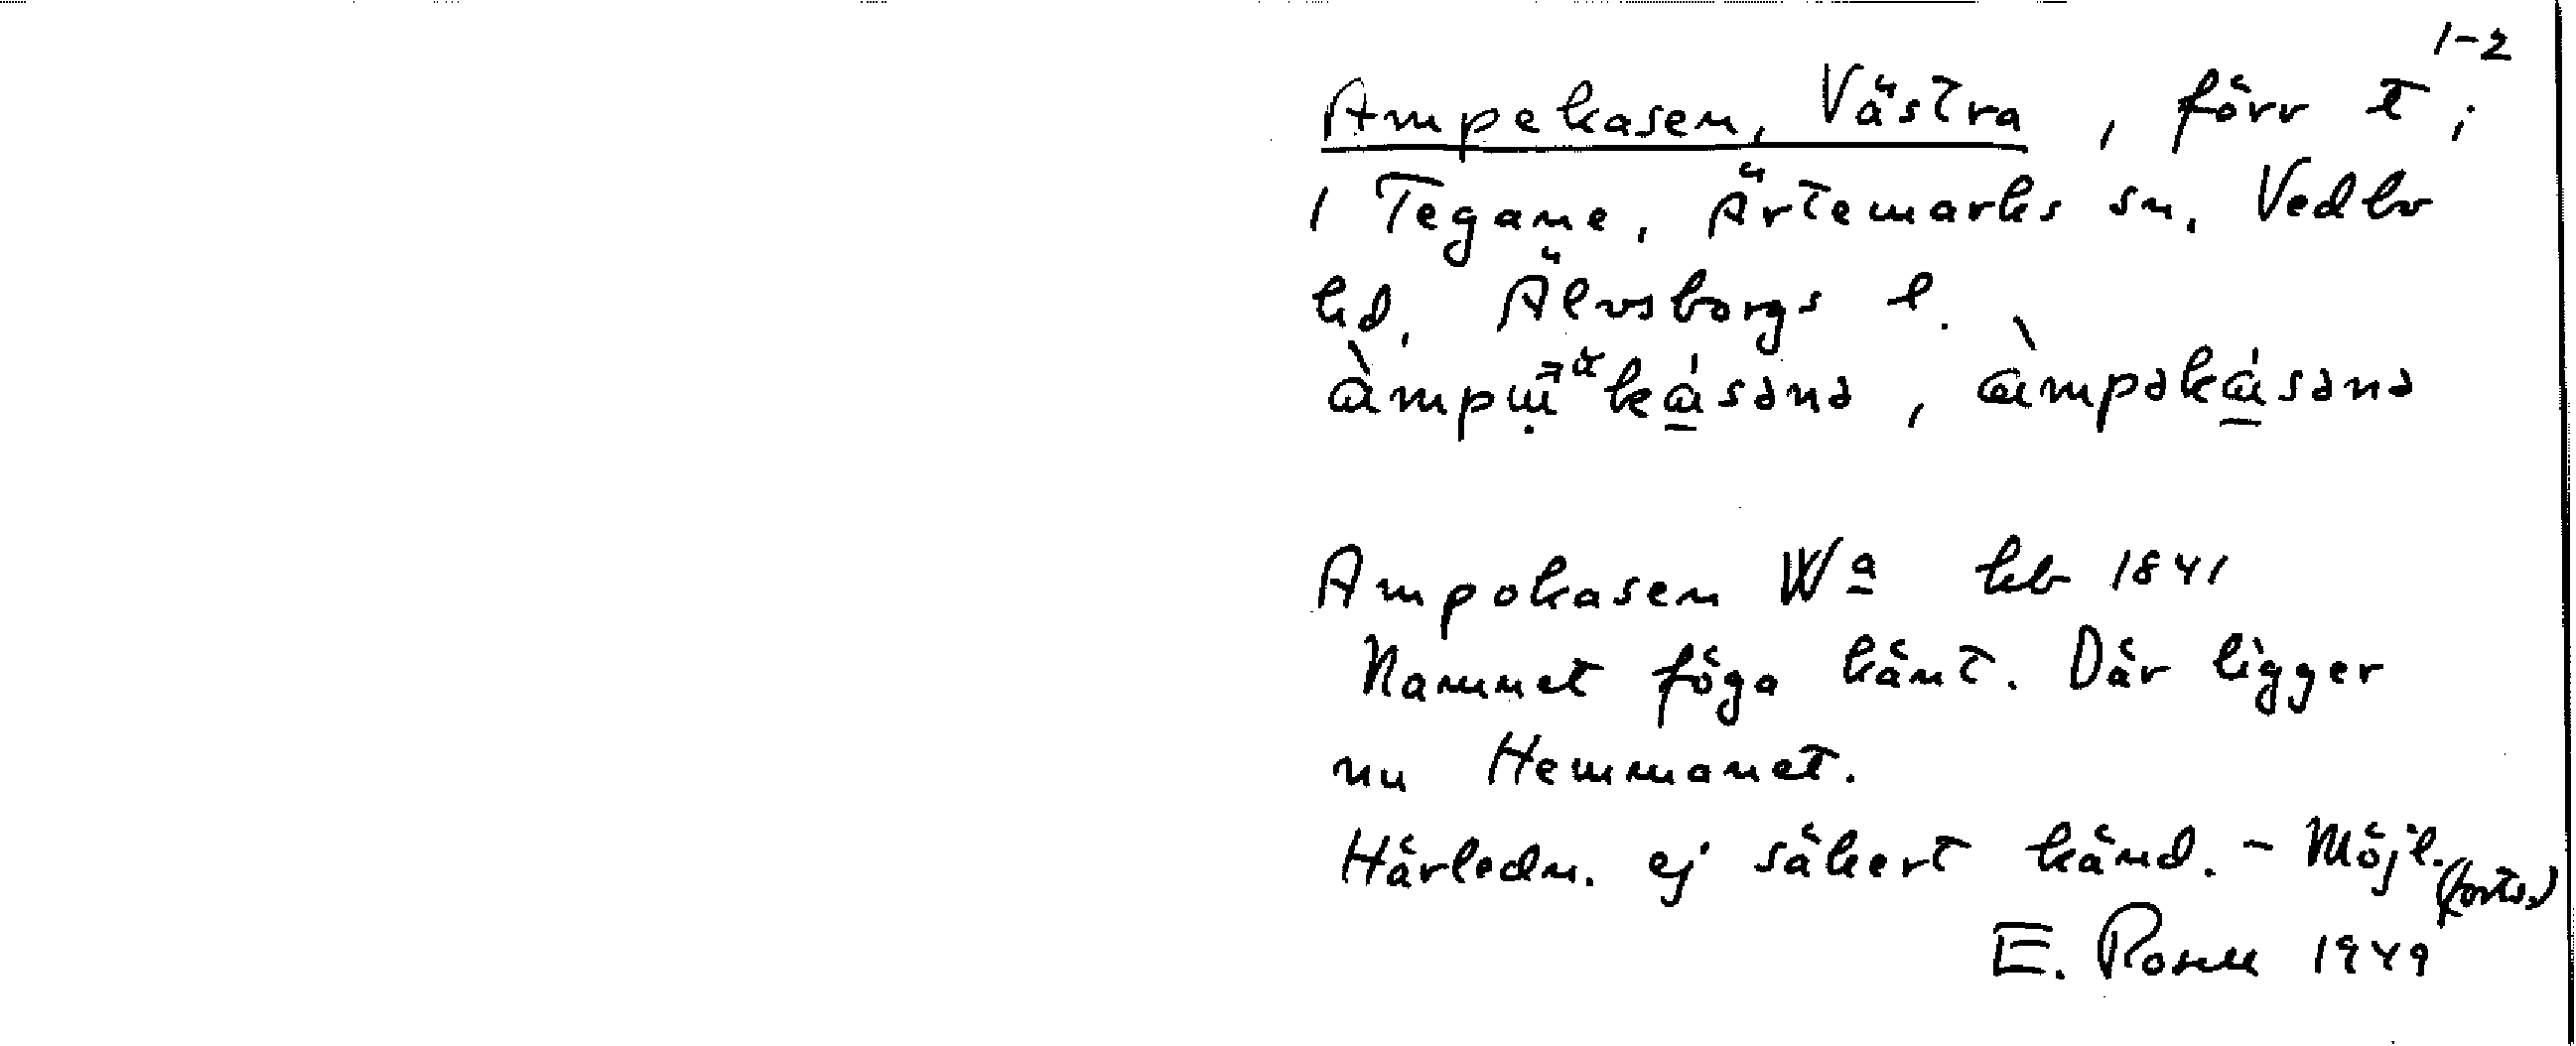 1-2
Ampekasen, Västra, förr t,
1 Tegane, Ärtemarks sn, Vedbo
hd, Älvsborgs l.
, àmpəkásənə
Ampokasen Wa hb 1841
Namnet föga känt. Där ligger
nu Hemmanet.
Härledn. ej säkert känd. - Möjl. (forts.)
E. Rosell 1949